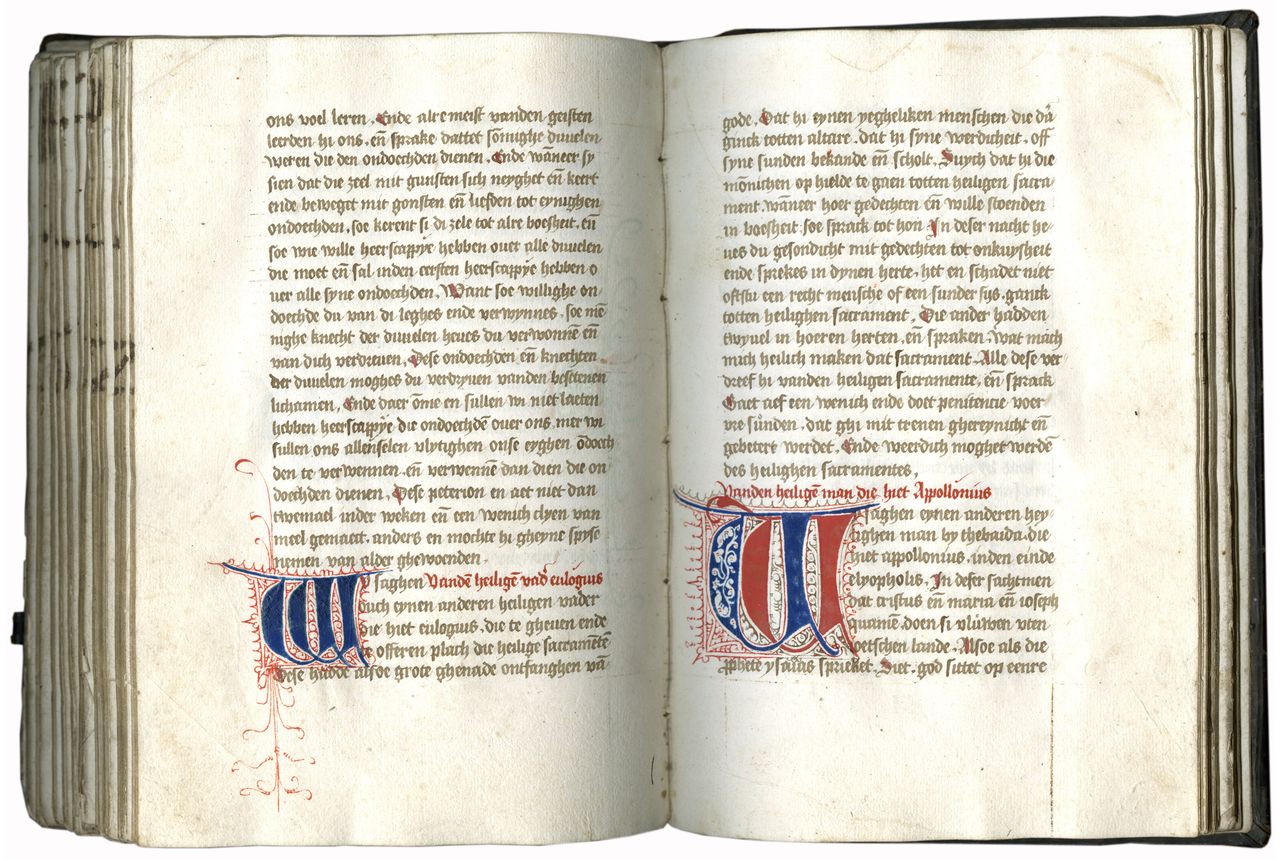 ons voel leren. Ende alremeist vanden geisten
leerden hi ons. en̄ sprake dattet sōmighe duuelen
weren die den ondoechden dienen. Ende wāneer sy
sien dat die zeel mit gunsten sich neyghet en̄ keert
ende beweget mit gonsten en̄ liefden tot eynighen
ondoechden. soe kerent si di zele tot alre boesheit. en̄
soe wie wille heerscappye hebben ouer alle duuelen
die moet en̄ sal inden eersten heerscappye hebben o
uer alle syne ondoechden. Want soe willighe on-
doechde du van di leghes ende verwynnes. soe mē
nighe knecht der duuelen heues du verwonnē en̄
van dich verdreuen. Dese ondoechden en̄ knechten
der duuelen moghes du verdryuen vanden besetenen
lichamen. Ende daer ōme en sullen wi niet laeten
hebben heerscappye die ondoechdē ouer ons. mer wi
sullen ons allenselen vlytighen onse eyghen ōdoech
den te verwennen. en̄ verwennē dan dien die on
doechden dienen. Dese peterion en aet niet dan
twemael inder weken en̄ een wenich clyen van
meel gemaect. anders en mocht hi gheyne spyse
nemen van alder ghewoenden.
Wy saghen Vandē heiligē vad̄ eulogius
ouch eynen anderen heiligen vader
die hiet eulogius. die te gheuen ende
te offeren plach die heilige sacramētē
Dese hadde alsoe grote ghenade ontfanghen vā
gode. Dat hi eynen yegheliken menschen die dā
ginck totten altare. dat hi syne werdicheit. off
syne sunden bekande en̄ scholt. Suych dat hi die
mōnichen op hielde te gaen totten heiligen sacra-
ment. wāneer hoer gedechten en̄ wille stoenden
in boesheit soe sprack tot hon In deser nacht he-
ues du gesondicht mit gedechten tot onkuysheit
ende sprekes in dynen herte. het en schadet niet
oftstu een recht mensche of een sunder sys. ganck
totten heilighen sacrament. Die ander hadden
twyuel in hoeren herten. en̄ spraken. wat mach
mich heilich maken dat sacrament. Alle dese ver
dreef hi vanden heiligen sacramente. en̄ sprack
Gaet aef een wenich ende doet penitencie voer
vre sunden. dat ghi mit teenen ghereynicht en̄
gebetert werdet. Ende weerdich moghet werdē
des heilighen sacramentes.
Vanden heiligē man die hiet Appollonius
Wi saghen eynen anderen hey-
lighen man by thebaida. die
hiet appollonius. inden einde
elyopholis. In deser sachtmen
dat cristus en̄ maria en̄ ioseph
quamē. doen si vluwen vten
ioetschen lande. Alsoe als die
prophete ysaias sprieket. Siet. god sittet op eenre